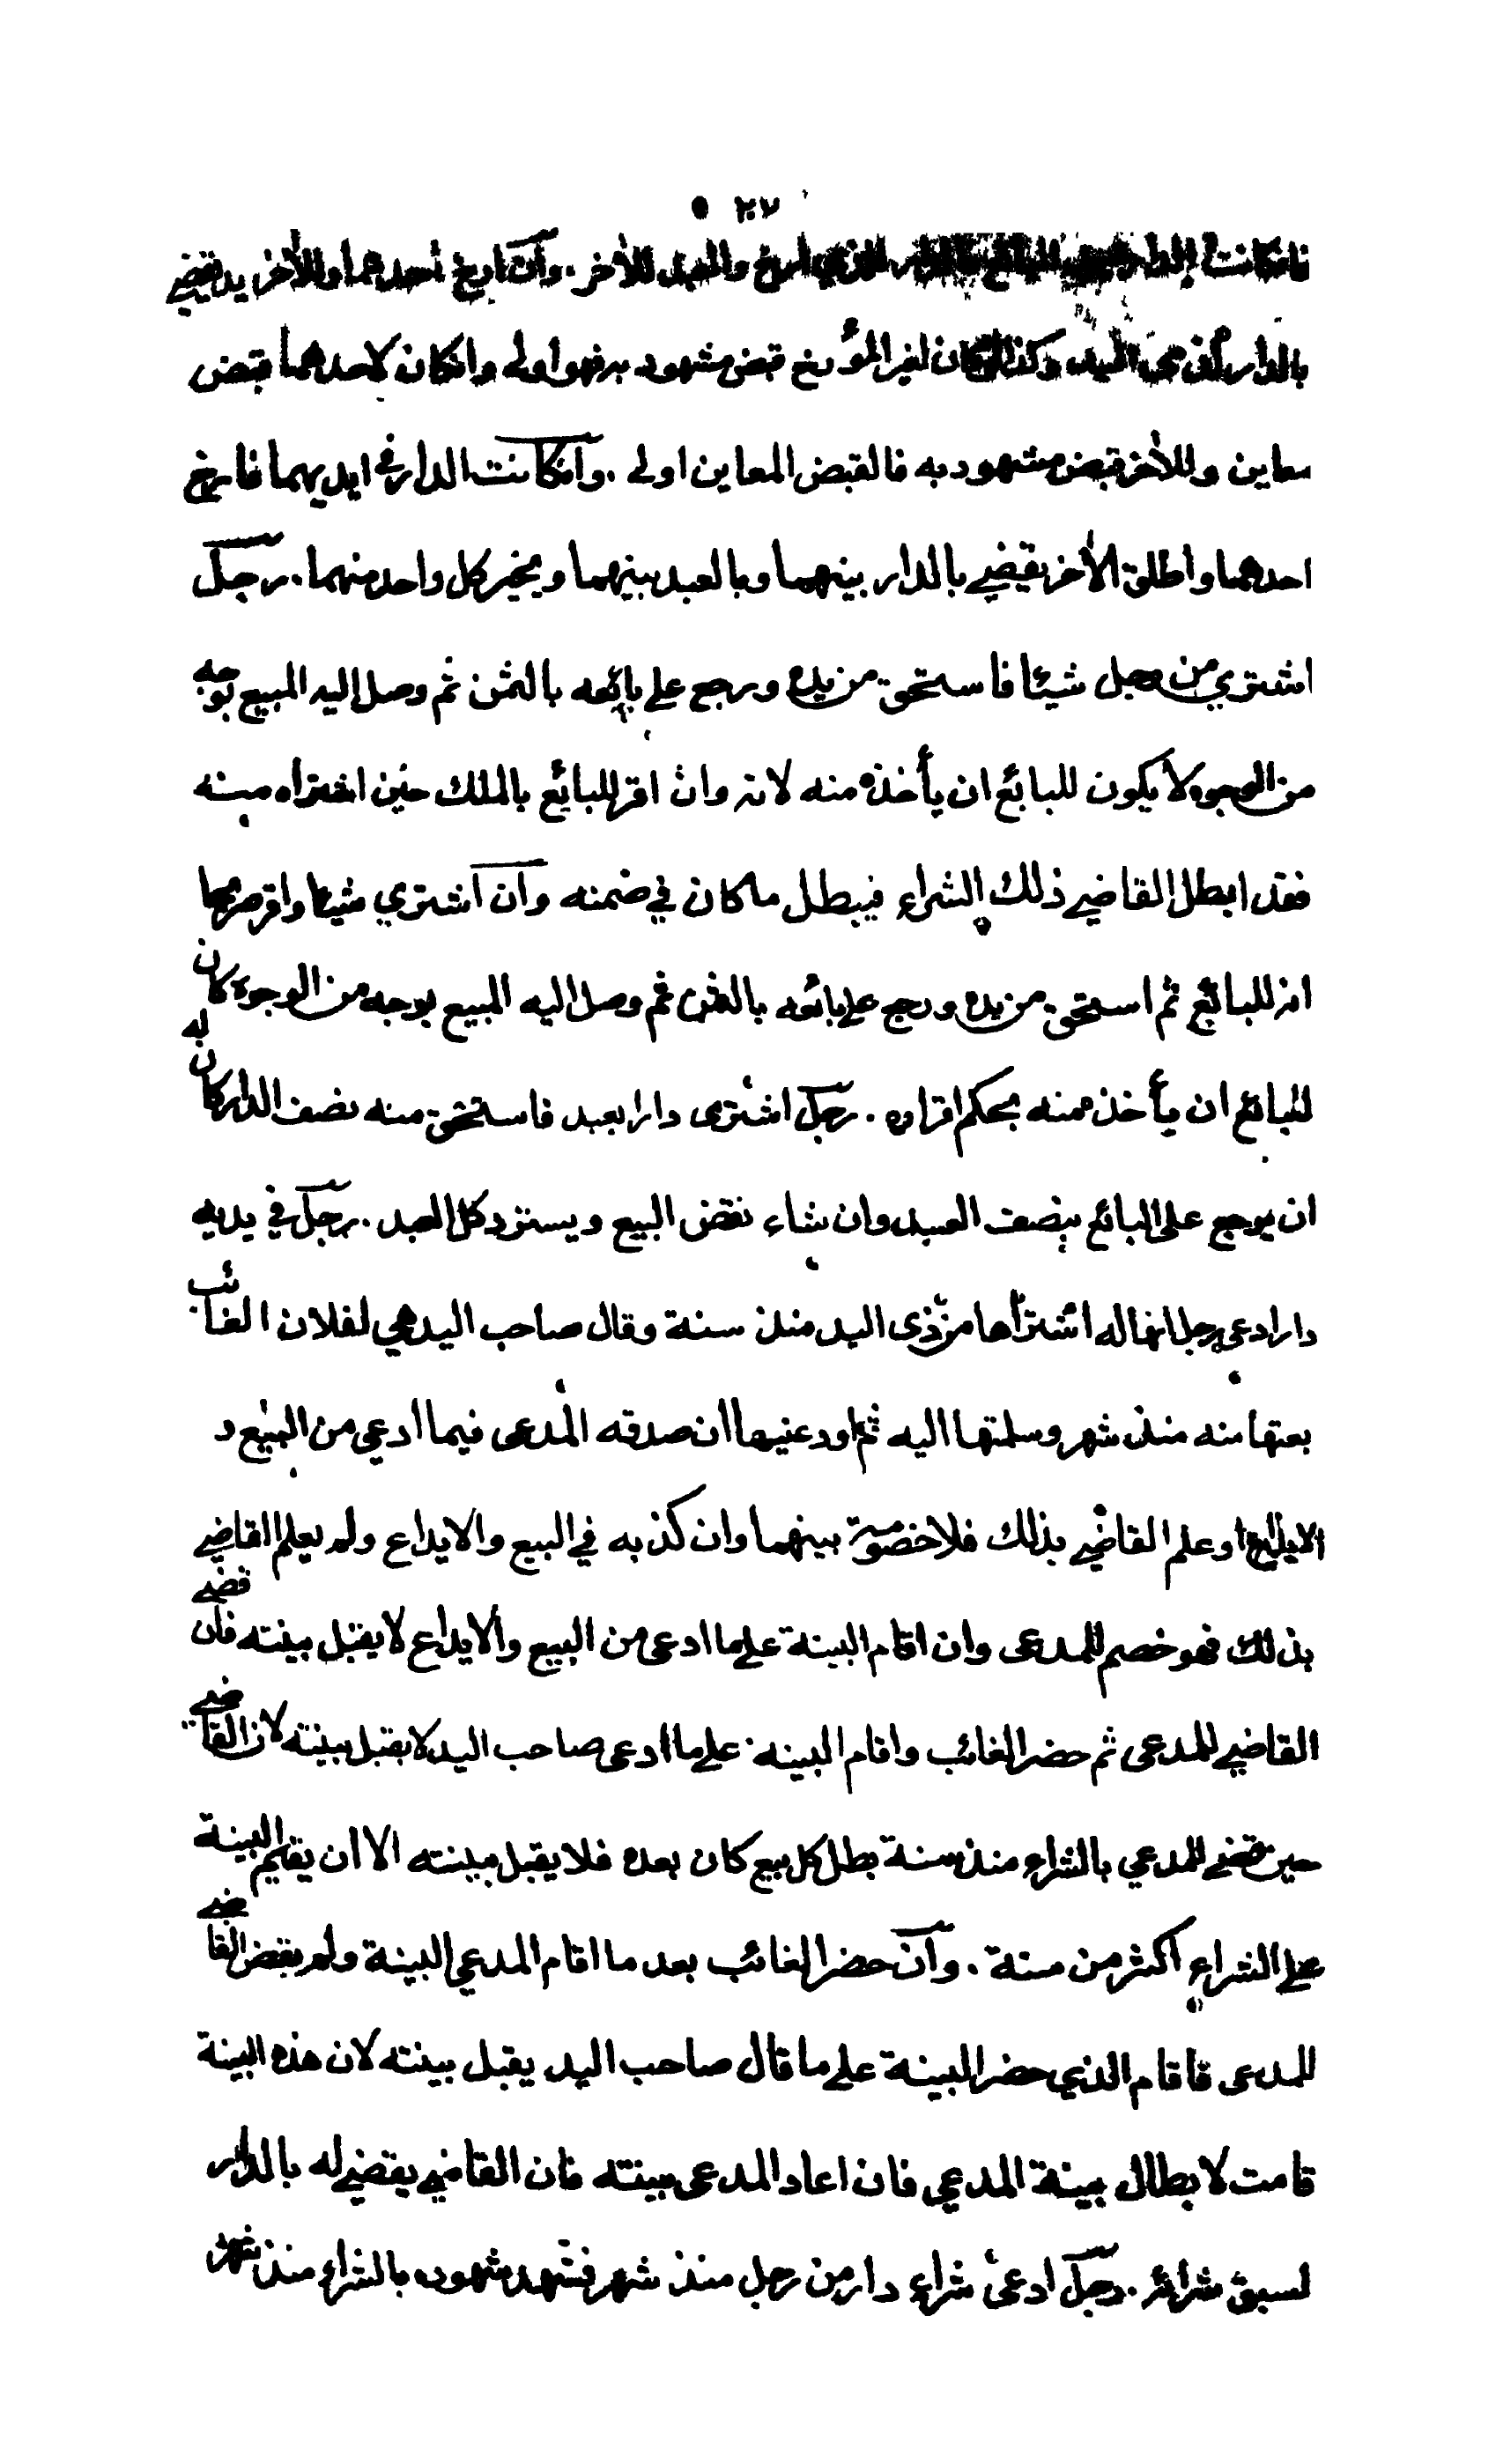 ٢٠٧
فان كانت الدار في يد البائع والعبد للآخر . وان ارخ احدهما وللآخر يد يقضي
بالدار وكذا ان كان لغير المؤرخ قبض مشهود به فهو اولى وانكان لاحدهما قبض
معاين وللآخر قبض مشهود به فالقبض المعاين اولى . وانكانت الدار في ايديهما فارخ
احدهما واطلق الآخر يقضي بالدار بينهما وبالعبد بينهما ويخير كل واحد منهما . رجل
اشترى من رجل شيئا فاستحق من يده ورجع على بائعه بالثمن ثم وصل اليه المبيع بوجه
من الوجوه لا يكون للبائع ان يأخذه منه لانه وان اقر للبائع بالملك حين اشتراه منه
فقد ابطل القاضي ذلك الشراء فيبطل ما كان في ضمنه وان اشتري شيئا واقر صريحا
انه للبائع ثم استحق من يده ورجع على بائعه بالثمن ثم وصل اليه المبيع بوجه من الوجوه كان
للبائع ان يأخذ منه بحكم اقراره . رجل اشترى دارا بعبد فاستحق منه نصف الدار كان له
ان يرجع على البائع بنصف العبد وان شاء نقض البيع ويسترد كل العبد . رجل في يديه
دار ادعى رجل انها له اشتراها من ذى اليد منذ سنة وقال صاحب اليد هي لفلان الغائب
بعتها منه منذ شهر وسلمتها اليه ثم اودعنيها ان صدقه المدعى فيما ادعي من البيع و
الايداع او علم القاضي بذلك فلا خصومة بينهما وان كذبه في البيع والايداع ولم يعلم القاضي
بذلك فهو خصم للمدعى وان اقام البينة على ما ادعى من البيع والايداع لا يقبل بينته فان قضى
القاضي للمدعى ثم حضر الغائب واقام البينه على ما ادعى صاحب اليد لا يقبل بينته لان القاضي
حين قضى للمدعي بالشراء منذ سنة بطل كل بيع كان بعده فلا يقبل بينته الا ان يقيم البينة
على الشراء اكثر من سنة . وان حضر الغائب بعد ما اقام المدعي البينة ولم يقض القاضي
للمدعى فاقام الذي حضر البينة على ما قال صاحب اليد يقبل بينته لان هذه البينة
قامت لابطال بينة المدعي فان اعاد المدعى بينته فان القاضي يقضي له بالدار
لسبق شرائه . رجل ادعى شراء دار من رجل منذ شهر فشهد شهوده بالشراء منذ شهر